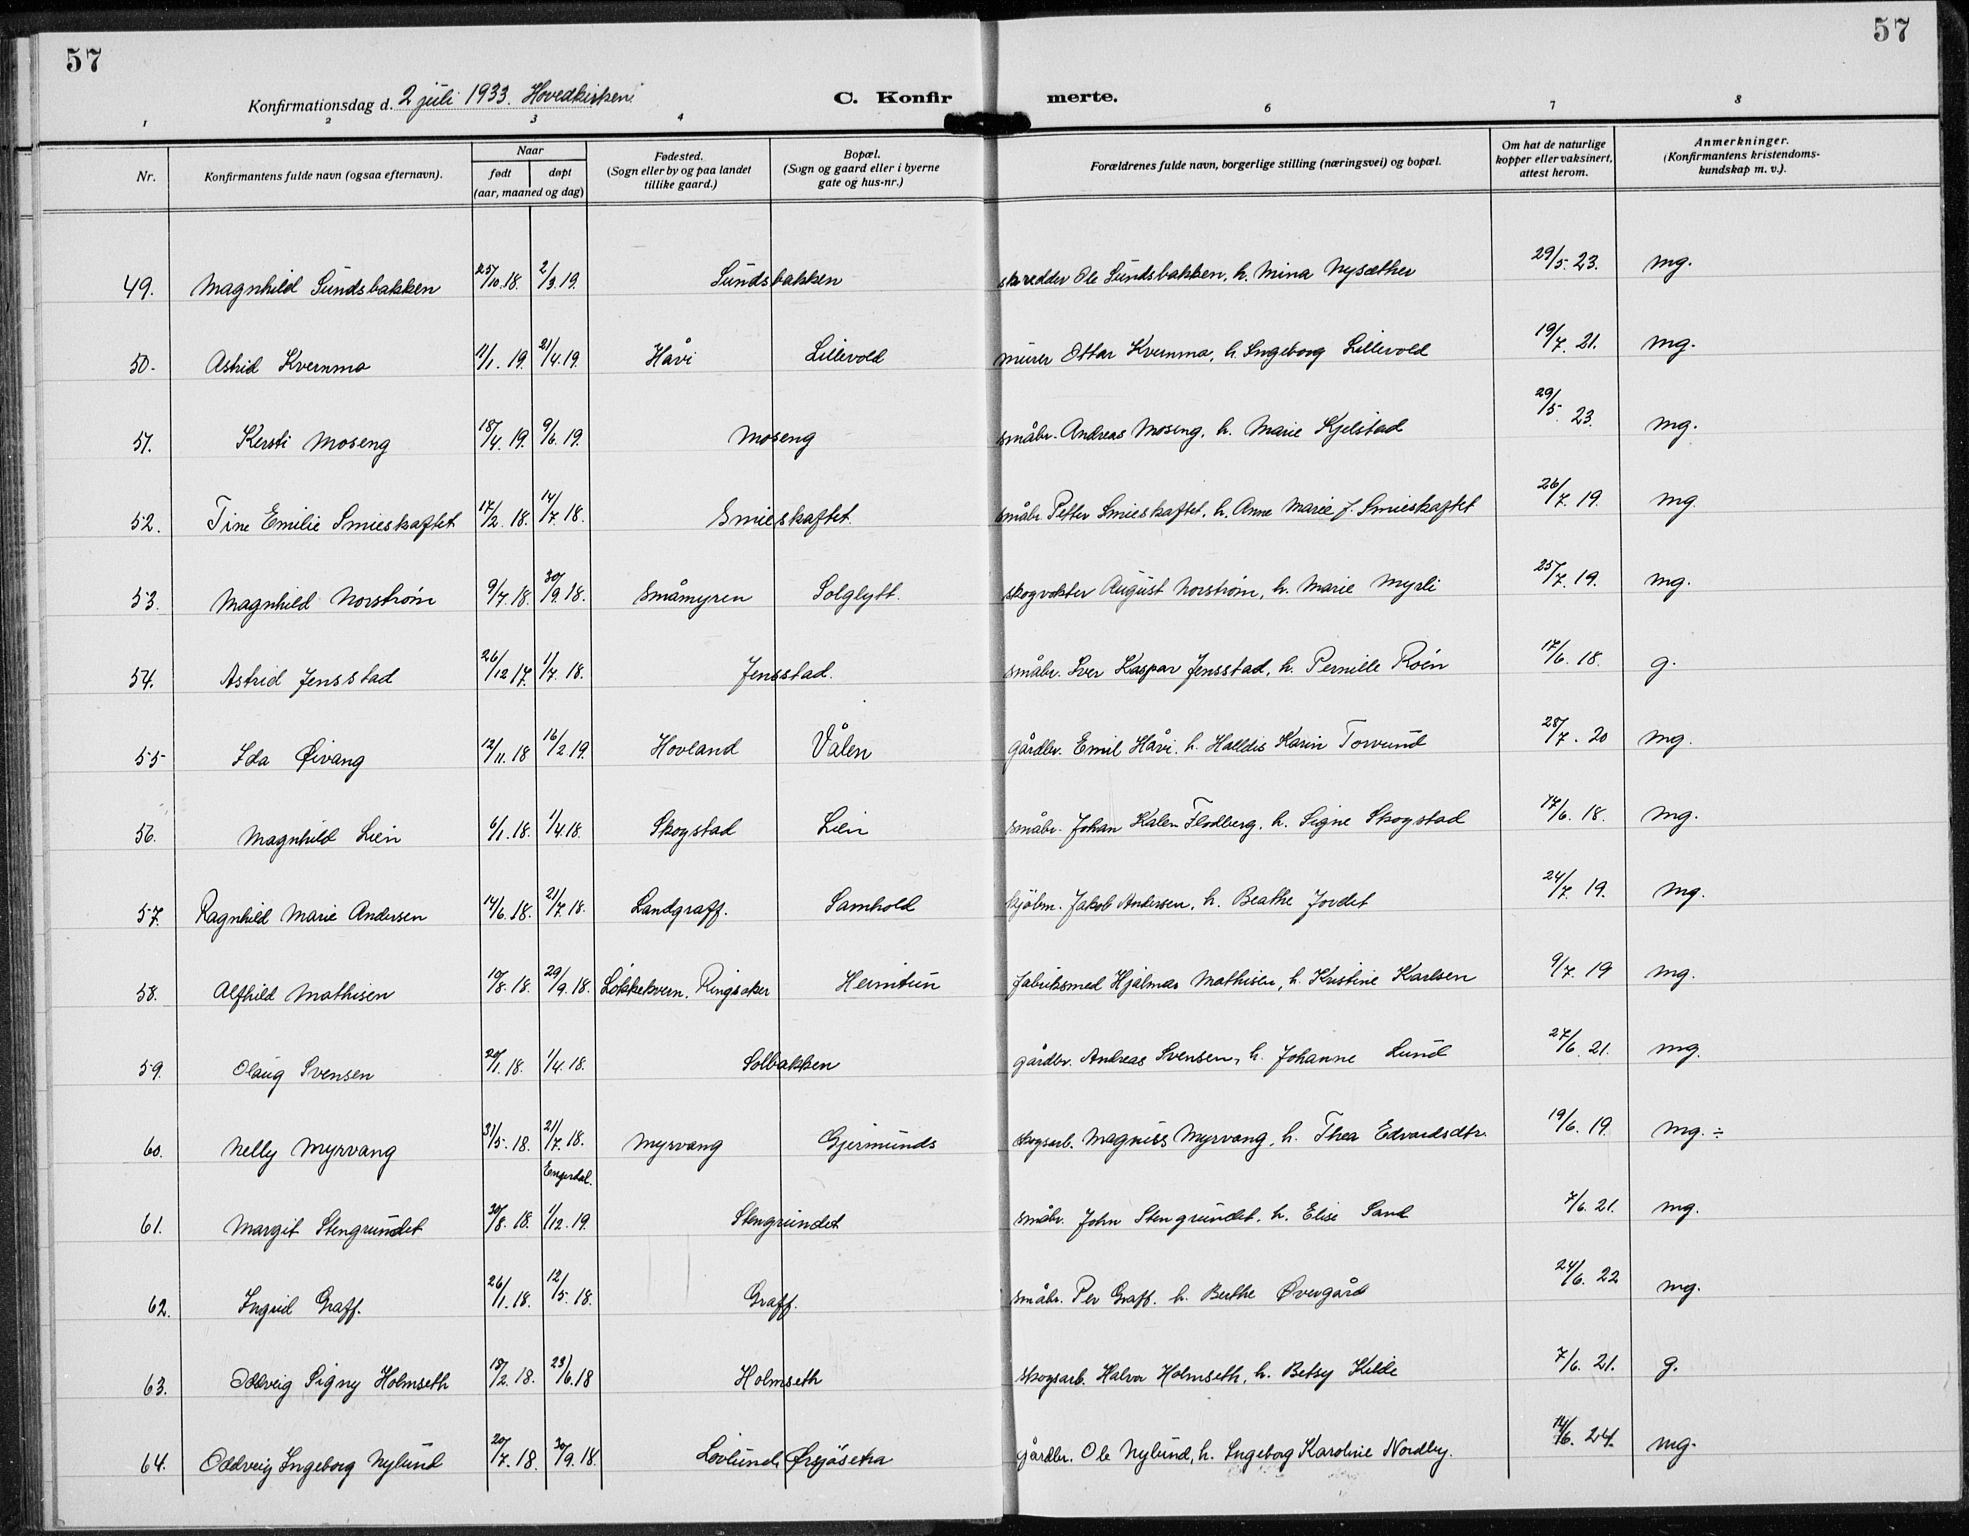 57
57
Konfirmationsdag d. 2 juli 1933. Hovedkirken.
C. Konfir merte.
1 2 3 4 6 7 8
Nr.
Konfirmantens fulde navn (ogsaa efternavn).
Naar
født døpt
(aar, maaned og dag)
Fødested.
(Sogn eller by og paa landet
tillike gaard.)
Bopæl.
(Sogn og gaard eller i byerne
gate og hus-nr.)
Forældrenes fulde navn, borgerlige stilling (næringsvei) og bopæl.
Om hat de naturlige
kopper eller vaksinert,
attest herom.
Anmerkninger.
(Konfirmantens kristendoms-
kundskap m. v.).
49. Magnhild Sundsbakken 25/10.18. 2/3.19. Sundsbakken skredder Ole Sundsbakken, h. Mina Nysæther 29/5.23. mg.
50. Astrid Kvernmo 11/1.19. 21/4.19. Håvi Lillevold murer Ottar Kvernmo, h. Ingeborg Lillevold 19/7.21. mg.
51. Kersti Moseng 18/4.19. 9/6.19. Moseng småbr. Andreas Moseng, h. Marie Kjelstad 29/5.23. mg.
52. Tine Emilie Smieskaftet 17/2.18. 14/7.18. Smieskaftet småbr. Petter Smieskaftet, h. Anne Marie f. Smieskaftet 26/7.19. mg.
53. Magnhild Norstrøm 9/7.18. 30/9.18. Småmyren Solglytt. skogvokter August Norstrøm, h. Marie Myrli 25/7.19. mg.
54. Astrid Jensstad 26/12.17. 1/7.18. Jensstad. småbr. Iver Kaspar Jensstad, h. Pernille Røen 17/6.18. g.
55 Ida Øivang 12/11.18 16/2.19. Hovland Vålen gårdbr. Emil Håvi, h. Halldis Karin Torvund 28/7.20 mg.
56. Magnhild Lien 6/1.18. 1/4.18. Skogstad Lien småbr. Johan Kalen Flodberg, h. Signe Skogstad 17/6.18. mg.
57. Ragnhild Marie Andersen 14/6.18. 21/7.18. Landgraff. Samhold kjøbm. Jakob Andersen, h. Beathe Jordet 24/7.19. mg.
58. Alfhild Mathisen 10/8.18. 29/9.18. Løkkekvern, Ringsaker Heimtun fabriksmed Hjalmar Mathisen, h. Kristine Karlsen 9/7.19 mg.
59. Olaug Svensen 20/1.18. 1/4.18. Solbakken gårdbr. Andreas Svensen, h. Johanne Lund 27/6.21. mg.
60. Nelly Myrvang 31/5.18. 21/7.18. Myrvang Gjermunds skogsarb. Magnus Myrvang, h. Thea Edvardsdtr. 19/6.19. mg. ÷
Engerdal.
61. Margit Stengrundet 30/8.18. 1/12.19 Stengrundet småbr. John Stengrundet, h. Elise Sand 7/6.21. mg.
62. Ingrid Graff. 26/1.18. 12/5.18. Graff. småbr. Per Graff. h. Berthe Øvergård 24/6.22 mg.
63. Oddveig Signy Holmseth 18/2.18. 23/6.18 Holmseth skogsarb. Halvor Holmseth, h. Betsy Kilde 7/6.21. g.
64. Oddveig Ingeborg Nylund 20/7.18. 30/9.18. Lovlund, Ørsjøsetra gårdbr. Ole Nylund, h. Ingeborg Karoline Nordby. 14/6.24. mg.